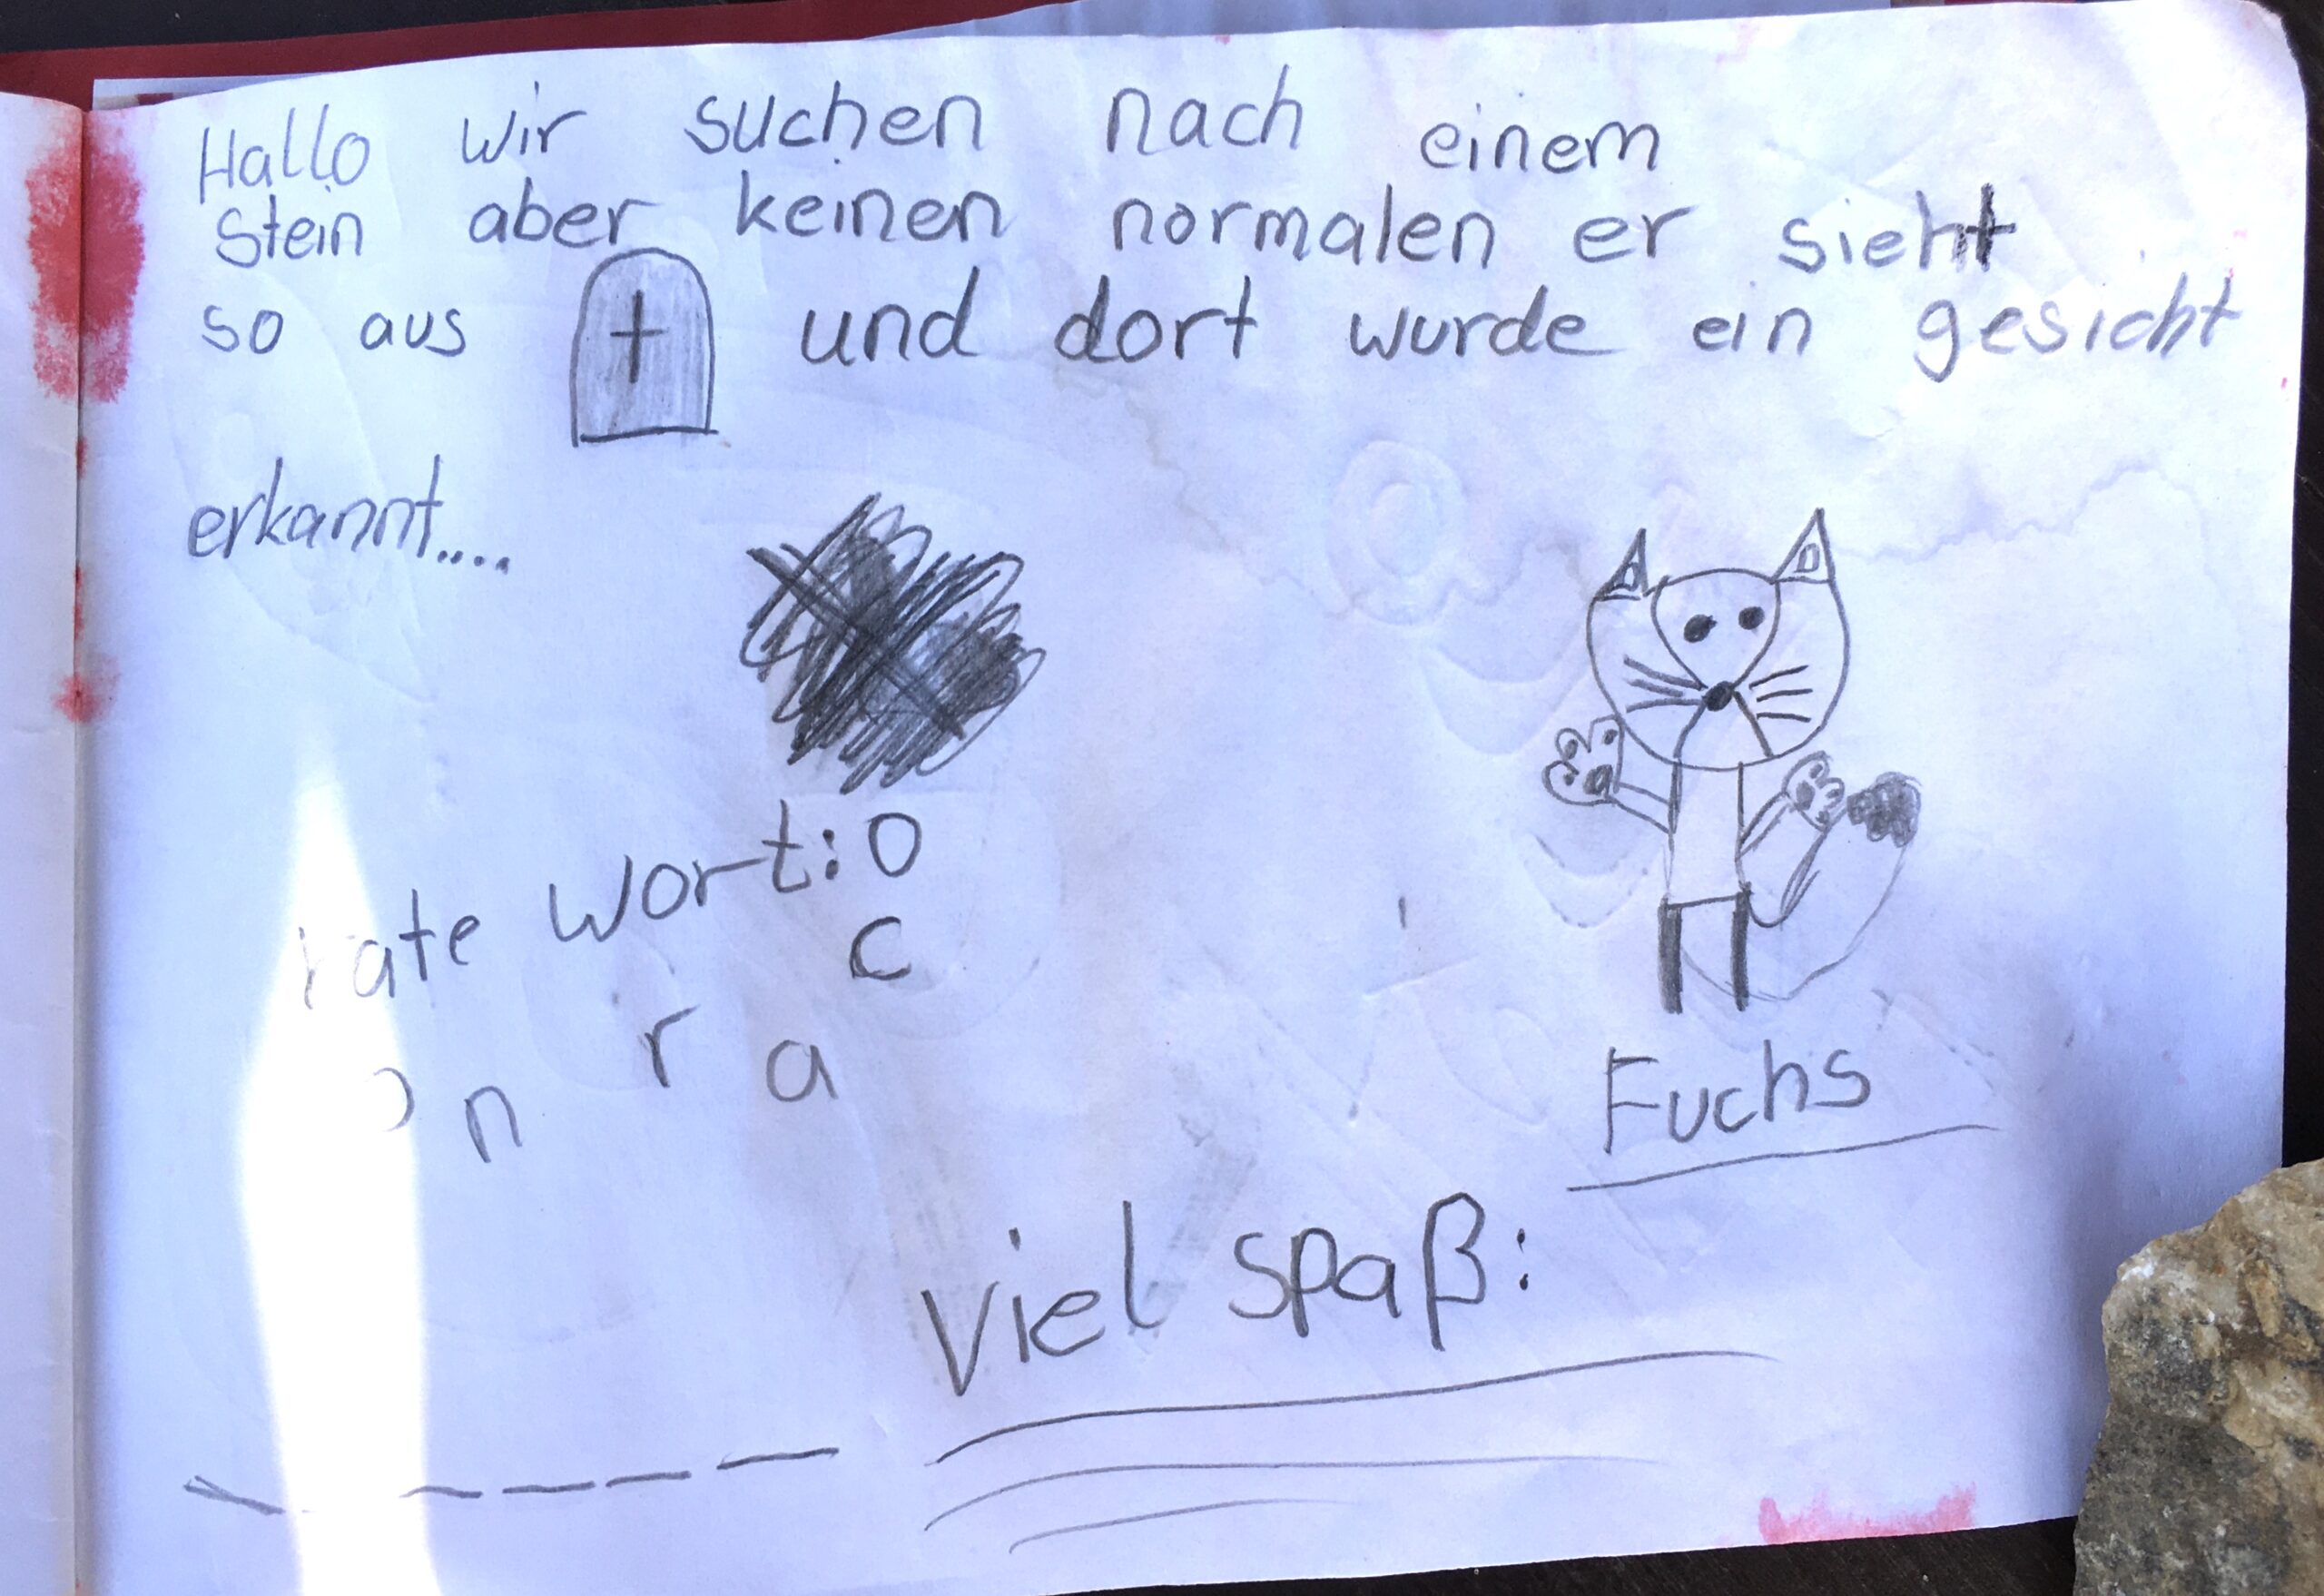 Hallo wir suchen nach einem
stein aber keinen normalen er sieht
so aus und dort wurde ein gesicht
erkannt....
rate wort: o
c
r a
n
Fuchs
Viel spaß: